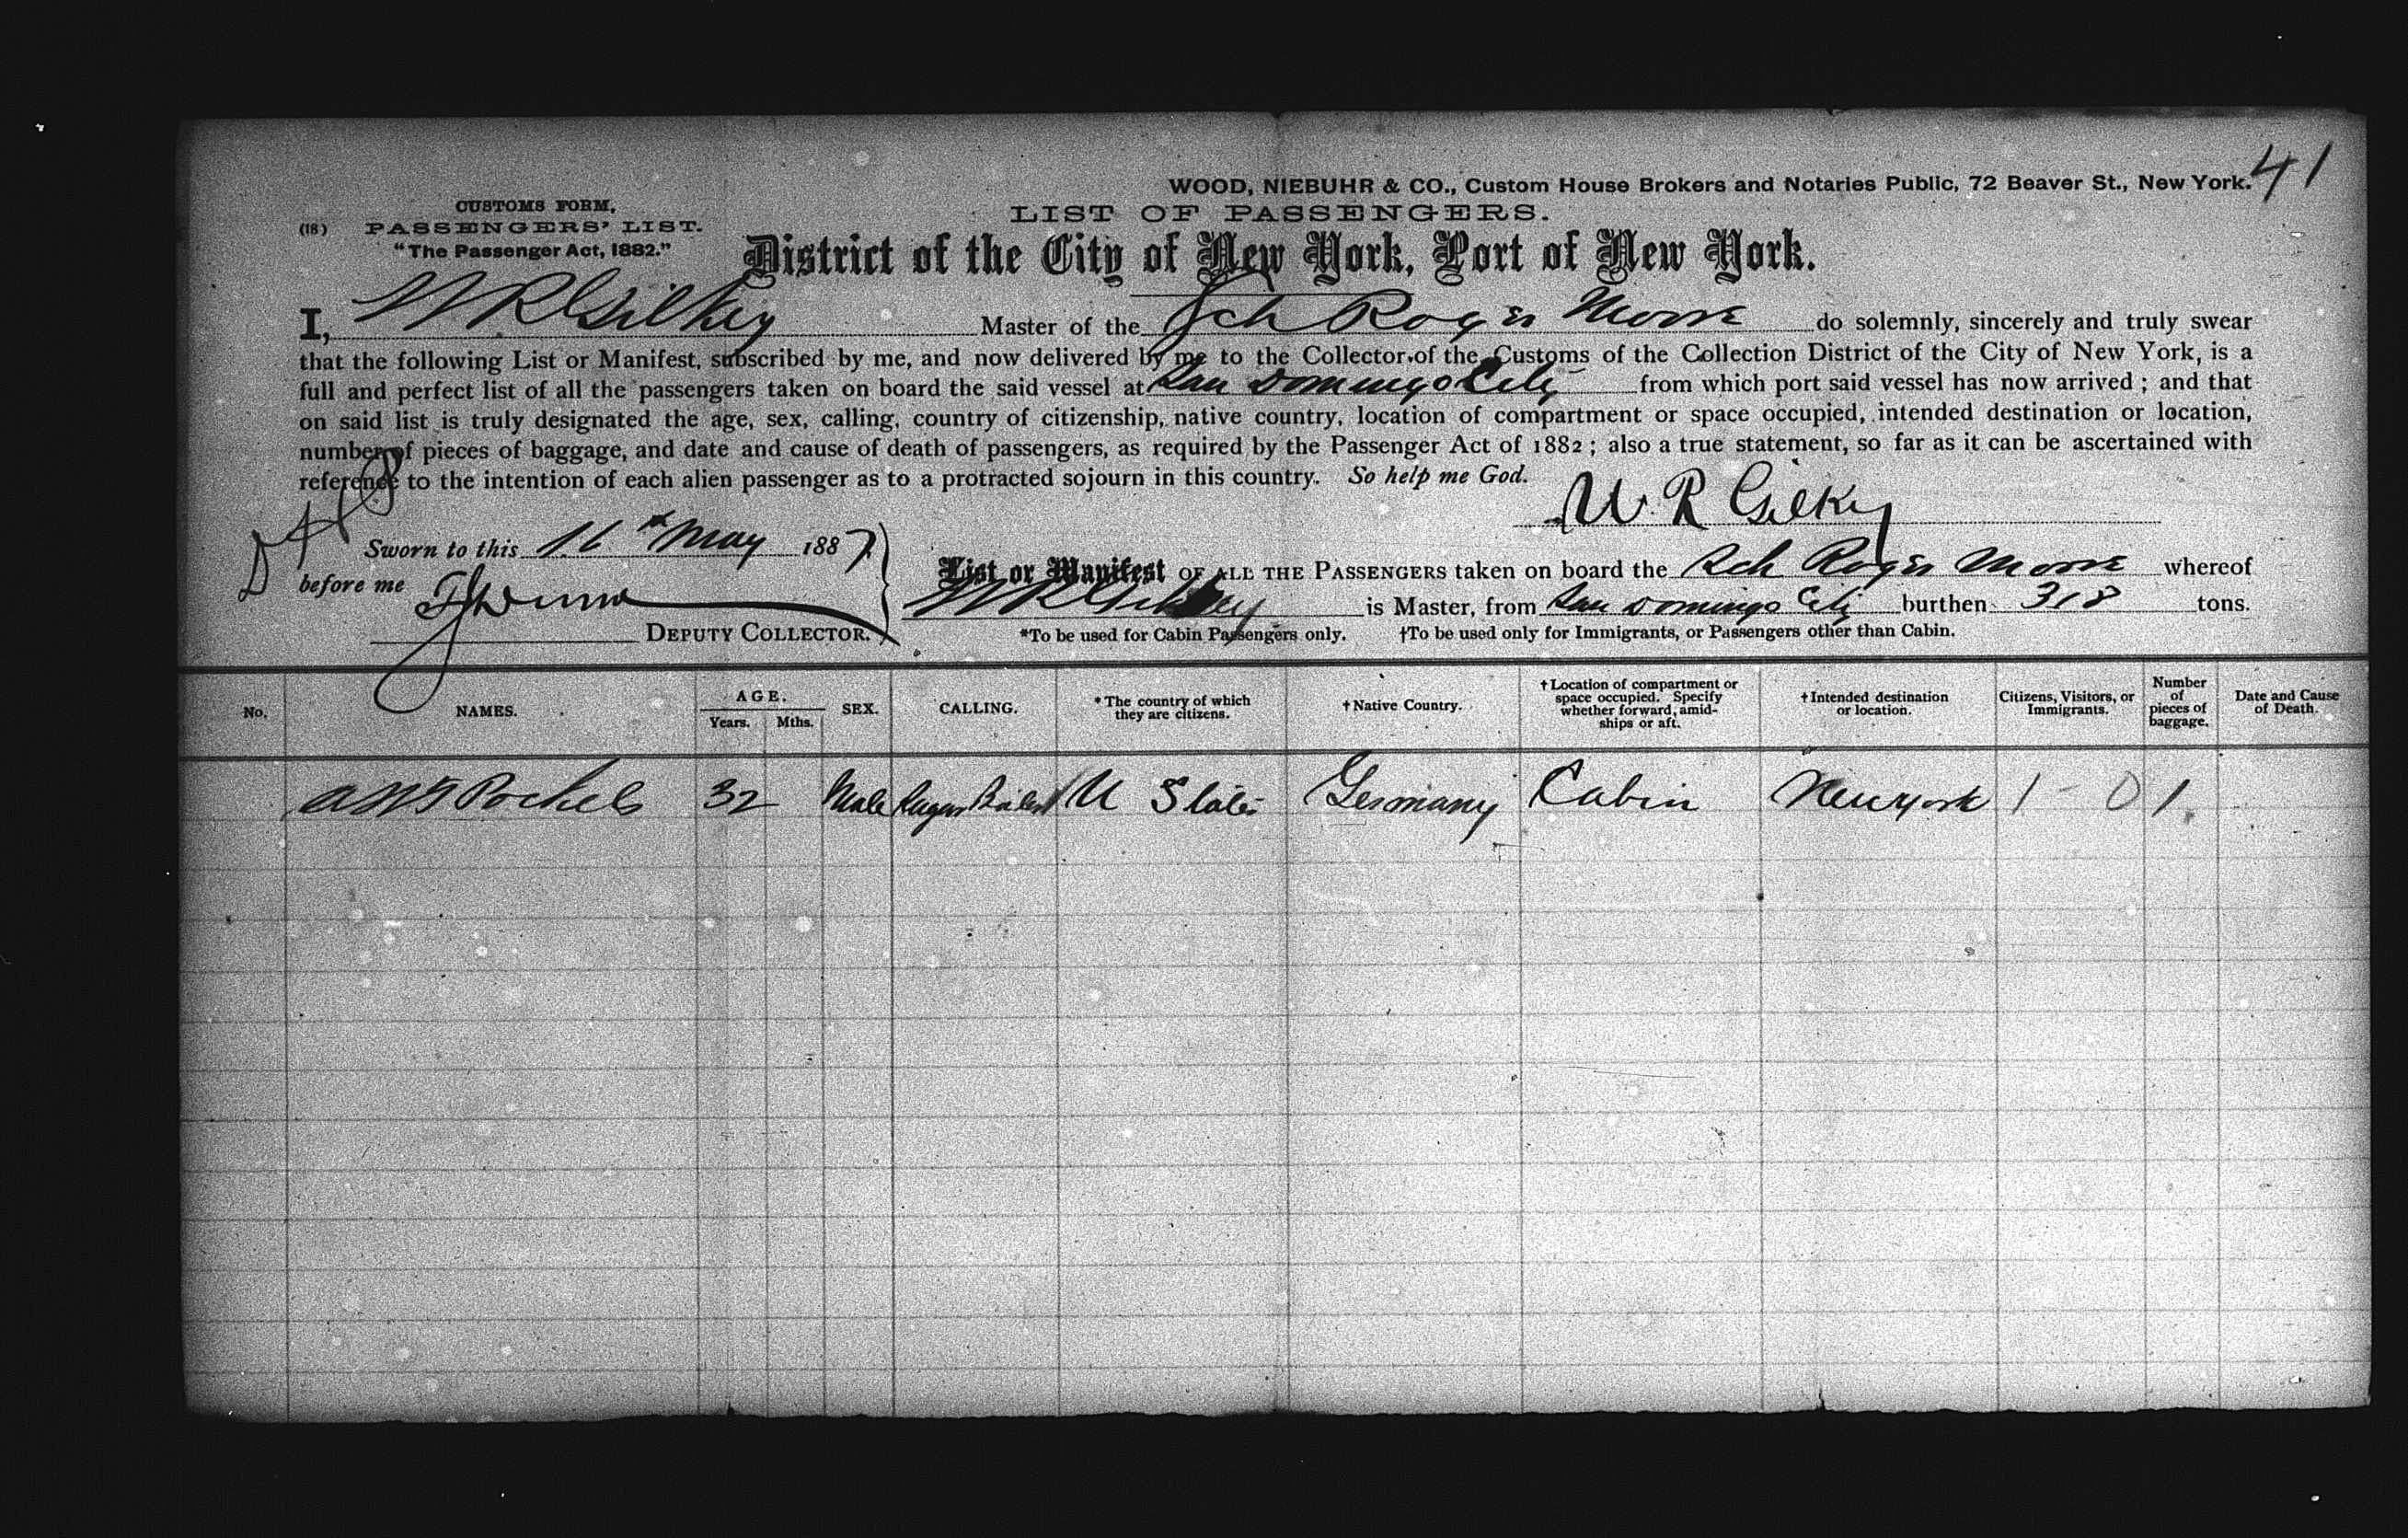 41
WOOD, NIEBUHR & CO., Custom House Brokers and Notaries Public, 72 Beaver St., New York.
CUSTOMS FORM,
LIST OF PASSENGERS.
(18) PASSENGERS' LIST.
"The Passenger Act, 1882."
District of the City of New York, Port of New York.
I, W R Gilkey Master of the Sch Roger Moore do solemnly, sincerely and truly swear
that the following List or Manifest, subscribed by me, and now delivered by me to the Collector of the Customs of the Collection District of the City of New York, is a
full and perfect list of all the passengers taken on board the said vessel at San Domingo City from which port said vessel has now arrived; and that
on said list is truly designated the age, sex, calling, country of citizenship, native country, location of compartment or space occupied, intended destination or location,
number of pieces of baggage, and date and cause of death of passengers, as required by the Passenger Act of 1882; also a true statement, so far as it can be ascertained with
reference to the intention of each alien passenger as to a protracted sojourn in this country. So help me God.
W. R Gilkey
Sworn to this 16th May 1887.
before me
DEPUTY COLLECTOR.
List or Manifest OF ALL THE PASSENGERS taken on board the Sch Roger Moore whereof
W R Gilkey is Master, from San Domingo City burthen 318 tons.
*To be used for Cabin Passengers only. †To be used only for Immigrants, or Passengers other than Cabin.
No. NAMES. AGE. Years. Mths. SEX. CALLING. *The country of which they are citizens. †Native Country. †Location of compartment or space occupied. Specify whether forward, amidships or aft. †Intended destination or location. Citizens, Visitors, or Immigrants. Number of pieces of baggage. Date and Cause of Death.
32 Male Sugar U States Germany Cabin New york 1 - 0 1